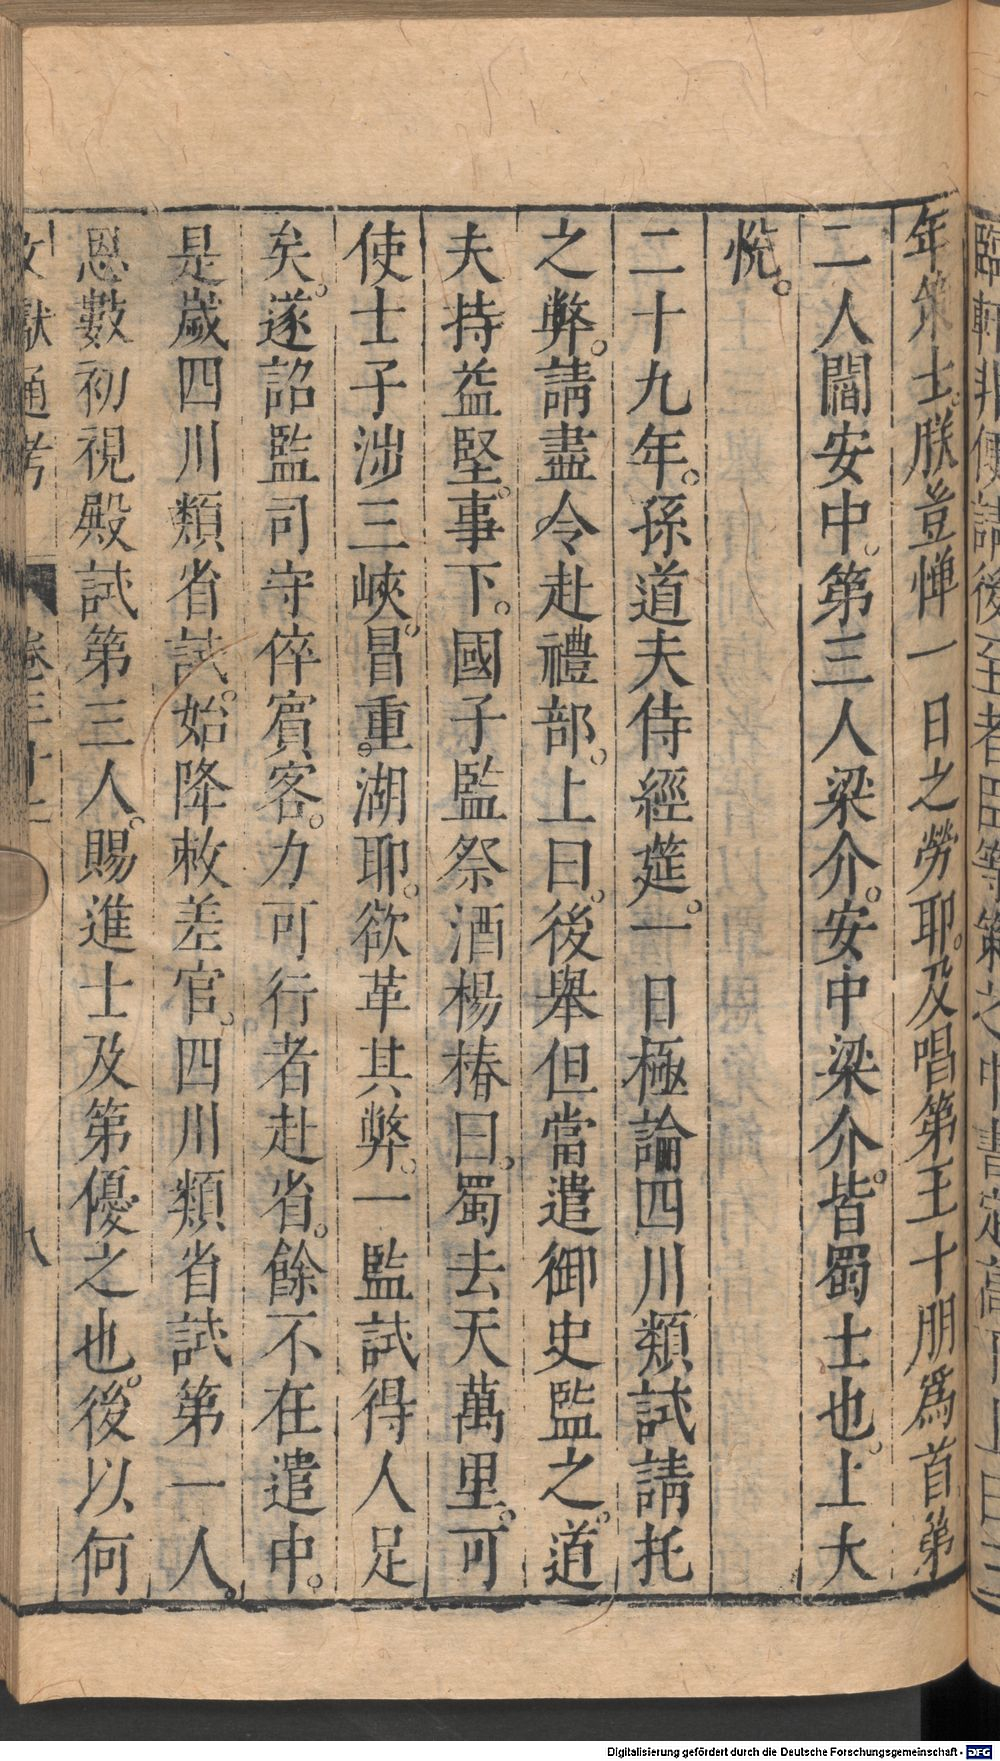 年策士。朕豈憚一日之勞耶。及唱第王十朋爲首。第
二人閻安中。第三人梁介。安中梁介。皆蜀士也。上大
悅。
二十九年。孫道夫侍經筵。一日極論四川類試請托
之弊。請盡令赴禮部。上曰。後舉但當遣御史監之。道
夫持益堅。事下。國子監祭酒楊椿曰。蜀去天萬里。可
使士子涉三峽。冒重。湖耶。欲革其弊。一監試得人足
矣。遂詔監司守倅賓客。力可行者赴省。餘不在遣中。
是歲四川類省試。始降敕差官。四川類省試第一人。
恩數初視殿試第三人。賜進士及第優之也。後以何
文獻通考
卷三十二
八
Digitalisierung gefördert durch die Deutsche Forschungsgemeinschaft - DFG